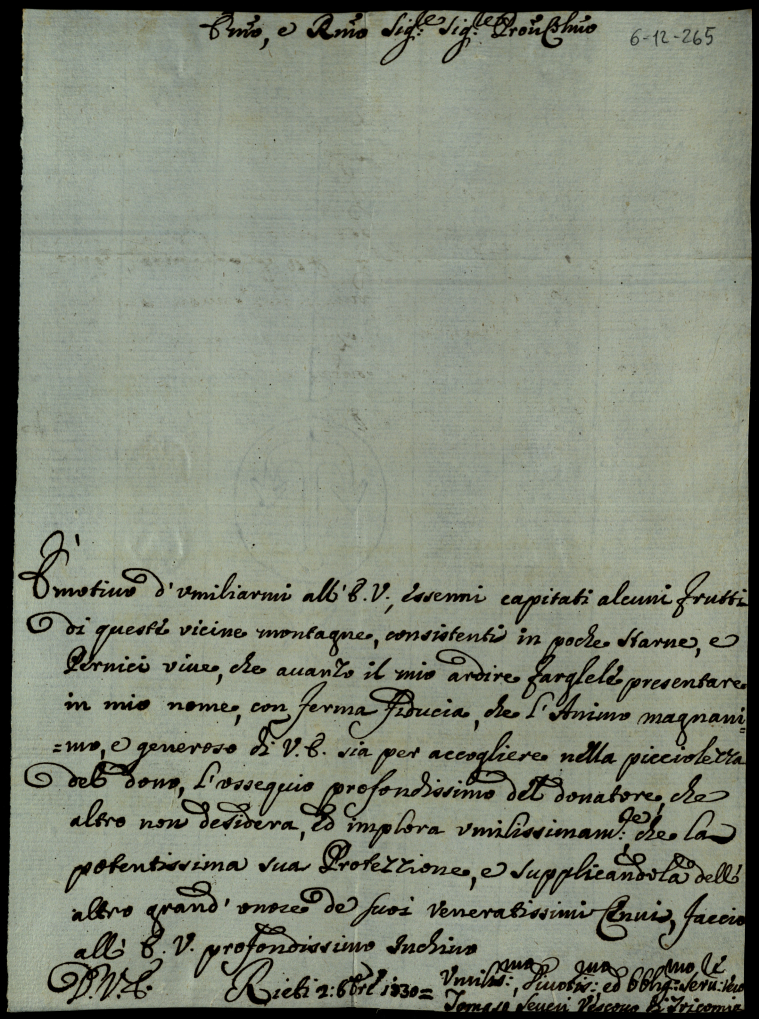 Emo, e Rmo Sig.re Sig.re Pron Colmo
6-12-265
È motivo d'umiliarmi all'E.V., essermi capitati alcuni frutti
di queste vicine montagne, consistenti in poche starne, e
Pernici vive, che avanzo il mio ardire fargliele presentare
in mio nome, con ferma fiducia, che l'Animo magnani=
=mo, e generoso di V.E. sia per accogliere nella picciolezza
del dono, l'ossequio profondissimo del donatore, che
altro non desidera, ed implora umilissimam:te che la
potentissima sua Protezzione, e supplicandola dell'
altro grand'onore de suoi veneratissimi Cenni, faccio
all'E.V. profondissimo Inchino
D.V.E. Rieti 2: 8bre 1830=
Umiliss:mo, Divotis:mo ed Obblig:mo Serv:re
Vescovo di